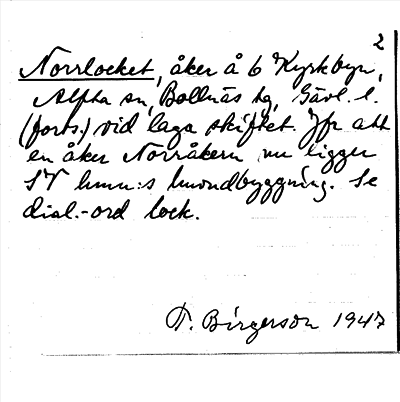 2
Norrlocket, åker å 6 Kyrkbyn,
Alfta sn, Bollnäs tg, Gävl. l.
(forts.) vid laga skiftet. Jfr att
en åker Norråkern nu ligger
SV hmn:s huvudbyggning. Se
dial.-ord lock.
T. Birgerson 1947